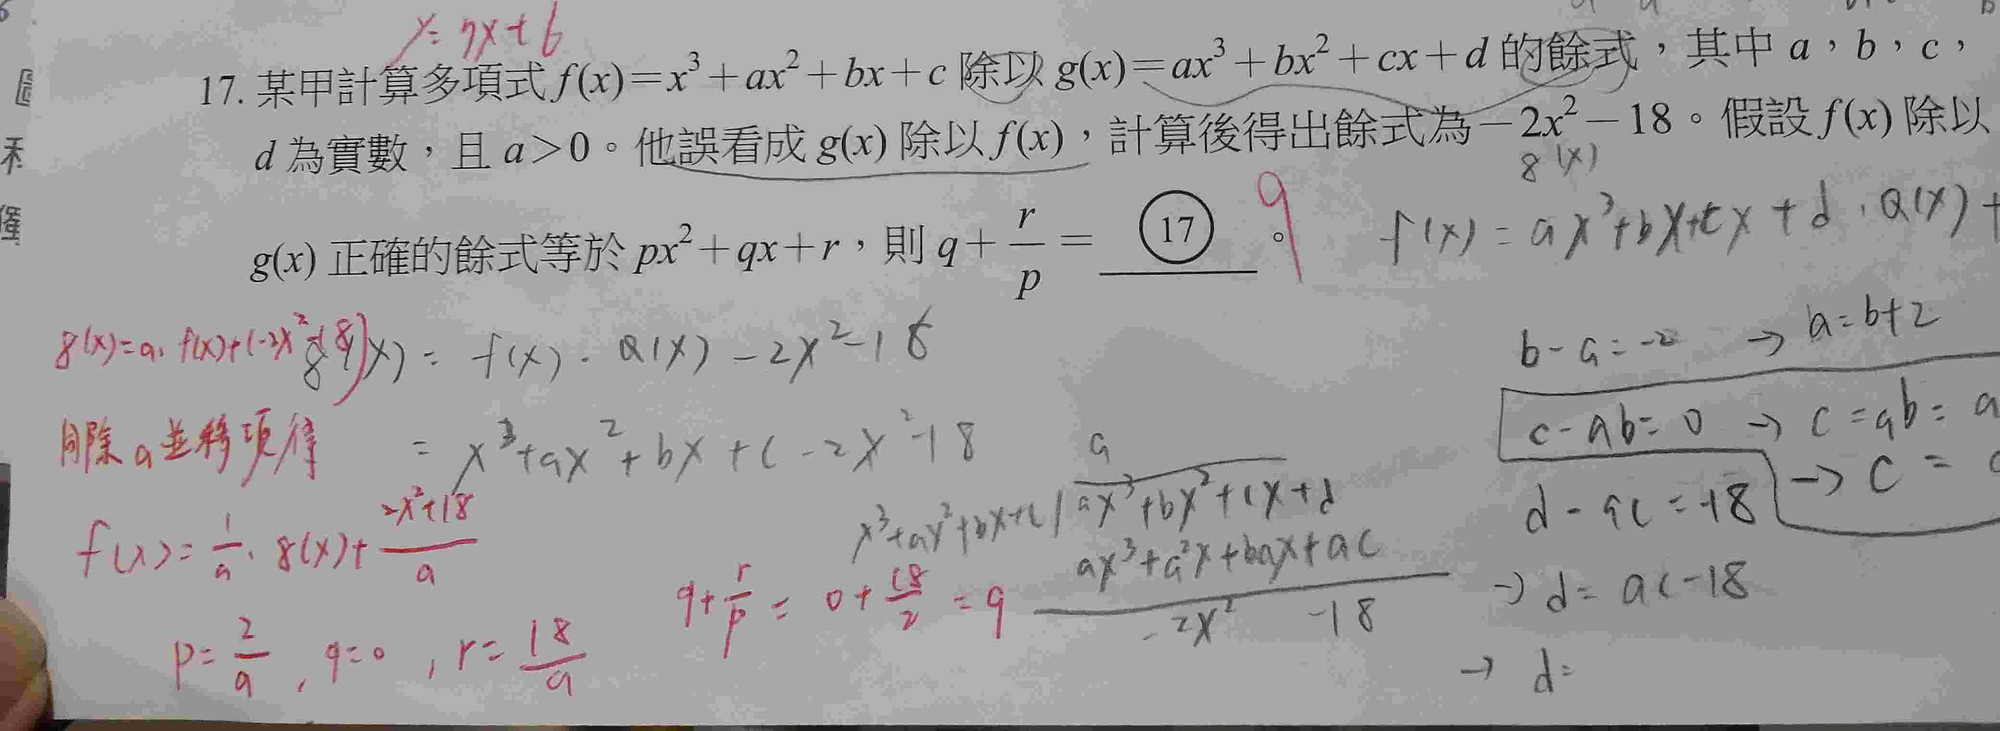 y=7x+6
17. 某甲計算多項式 f(x)=x³+ax²+bx+c 除以 g(x)=ax³+bx²+cx+d 的餘式，其中 a，b，c，
d 為實數，且 a>0。他誤看成 g(x) 除以 f(x)，計算後得出餘式為 −2x²−18。假設 f(x) 除以
g(x) 正確的餘式等於 px²+qx+r，則 q+r/p= ⑰ 。
9
g(x)
f(x)=ax³+bx+cx+d·Q(x)+
g(x)=a·f(x)+(-2x²-18)
g(x)=f(x)·Q(x)-2x²-18
=x³+ax²+bx+c-2x²-18
同除a並移項得
f(x)=1/a·g(x)+2x²+18/a
p=2/a,q=0,r=18/a
q+r/p=0+18/2=9
a
x³+ax²+bx+c
ax³+bx²+cx+d
ax³+a²x+bax+ac
-2x² -18
b-a=-2 → a=b+2
c-ab=0 → c=ab=a
→ c=
d-ac=-18
→ d=ac-18
→ d=